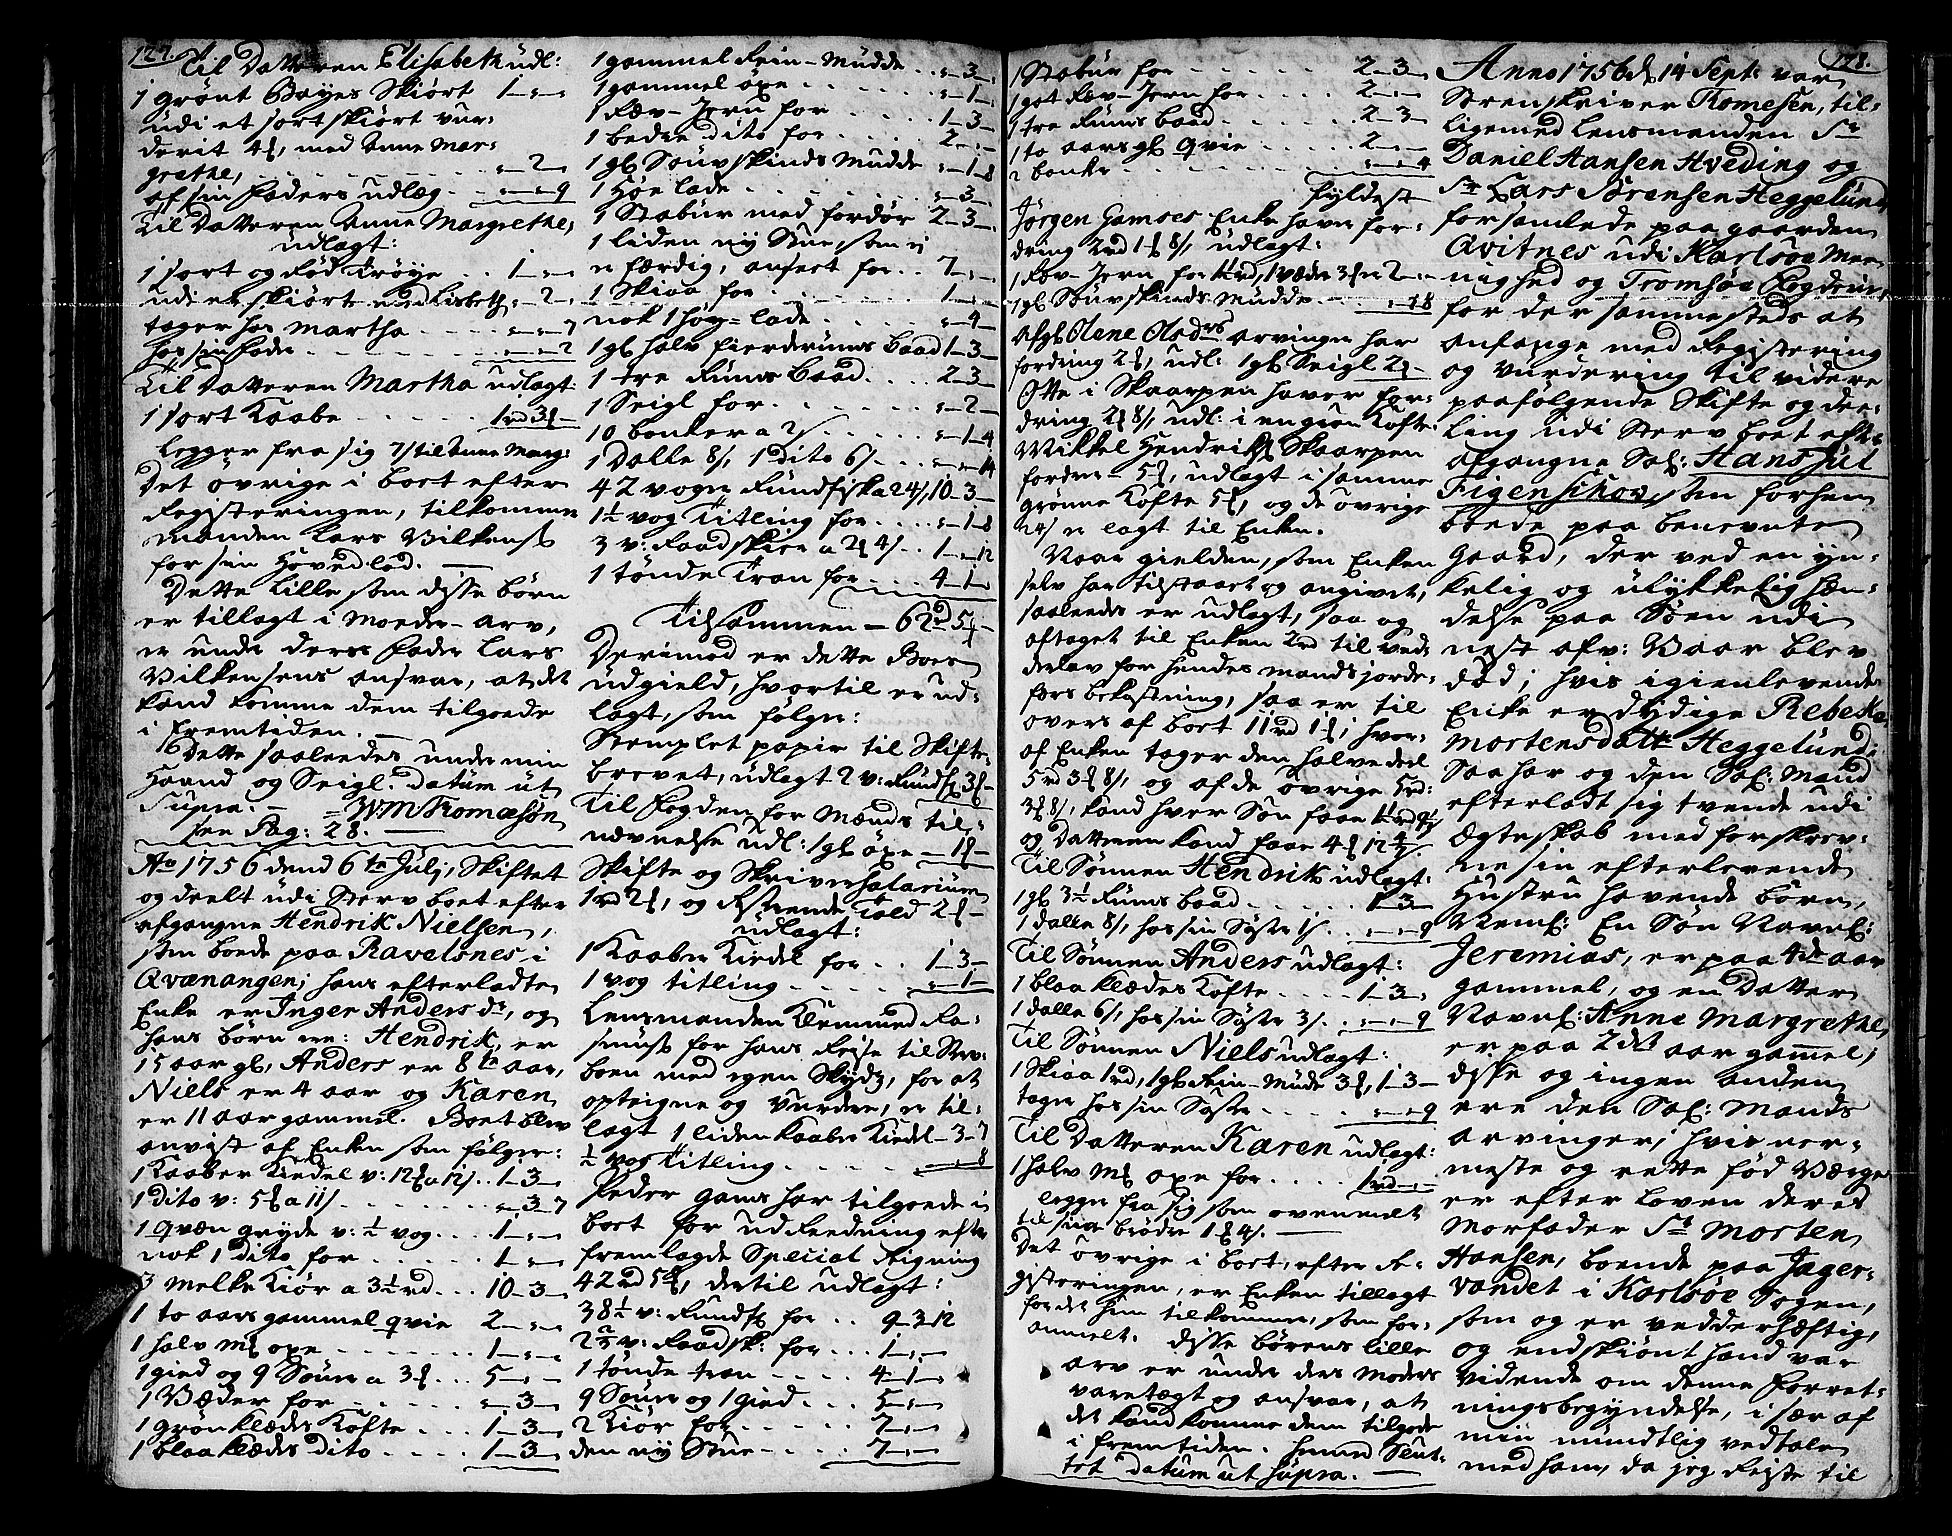 127.
Til Datteren Elisabeth udl:
1 grønt Bayes Skiört 1 - „ - „
udi et sort skiört vur-
derit 4 ƒ, med Anne Mar-
grethe, „ - 2 - „
af sin Faders udlæg „ - „ - 9
Til Datteren Anne Margrethe,
udlagt:
1 sort og Rød Trøye 1 - „ - „
udi et skiört med Lisbeth, „ - 2 - „
tager hos Martha „ - „ - 7
hos sin Fader „ - „ - 2
Til Datteren Martha udlagt:
1 sort Kaabe 1 rd 3 ƒ -
legger fra sig 7 s til Anne Marg:
Det övrige i boet efter
Registeringen, tilkommer
manden Lars Vilkens
for sin Hovedlod.
Dette lille som disse børn
er tillagt i Moder-arv,
er under deres Fader Lars
Vilkensens ansvar, at det
kand komme dem tilgode
i fremtiden.
Dette saaledes under min
Haand og Seigl. Datum ut
Supra. WM Thomesøn
see Pag: 28.
Ao 1756 dend 6te Julj, Skiftet
og deelt udi Sterv boet efter
afgangne Hendrik Nielsen,
som boede paa Ravelsnes i
Qvænangen; hans efterladte
Enke er Inger Andersdr, og
hans børn ere: Hendrik, er
15 aar gl, Anders er 8te aar,
Niels er 4 aar og Karen
er 11 aar gammel. Boet blev
anvist af Enken som følger:
1 Kaaber Kiedel v: 12 ƒ a 12 s 1 - 3 -
1 dito v: 5 ƒ a 11 s „ - 3 - 7
1 qvæn gryde v: ½ vog 1 - „ - „
nok 1 dito for 1 - „ - „
3 melke Kiör a 3½ rd 10 - 3 -
1 to aars gammel qvie 2 - „ - „
1 halv Mƒ oxe 1 - „ - „
1 gied og 9 Souer a 3 ƒ 5 - „ - „
1 Væder for „ - 3 -
1 grøn klædes Kofte 1 - 3 -
1 blaa klædes dito 1 - 3 -
1 gammel Rein-mudde „ - 3 - „
1 gammel öxe „ - 1 -
1 Ræv-Jern for 1 - 3 -
1 bedre dito for 2 - „ -
1 gl Souvskinds mudde „ - 1 - 8
1 Høe lade „ - 3 -
1 Stabur med fordør 2 - 3 -
1 liden ny Stue, som ej
er færdig, ansert for 7 - „ -
1 Skiaa for 1 - „ -
nok 1 høe-lade „ - 4 -
1 gl halv fierderums baad 1 - 3 -
1 tre Rums baad 2 - 3 -
1 Seigl for „ - 2 -
10 bonker a 2 s „ - 1 - 4
1 Dalle 8 s, 1 dito 6 s „ - „ - 14
42 voger Rundfisk a 24 s 10 - 3 -
1½ vog Titling for „ - 1 - 8
3 v: Raadskier a 2 ƒ 4 s 1 - „ - 12
1 tönde Tran for 4 - 1 -
Tilsammen - 62 rd 5 ƒ -
Derimod er dette Boes
udgield, hvortil er ud-
lagt, som følger:
Stemplet papir til Skifte-
brevet, udlagt 2 v: Rundf 3 ƒ -
Til Fogden for mænds til-
nævnelse udl: 1 gl öxe - 1 ƒ -
Skifte og Skriver Salarium
1 rd 2 ƒ, og Resterende Told 2 ƒ -
udlagt:
1 Kaaber Kiedel for 1 - 3 -
1 vog titling „ - 1 -
Lensmanden Klemmed Ra-
smuss for hans Rejse til Sterv-
boen med egen Skydz, for at
opteigne og vurdere, er til-
lagt 1 liden Kaaber Kiedel - 3 - 7
½ vog Titling „ - „ - 8
Peder Gams har tilgode i
boet for udReedning efter
fremlagde Special Rigning
42 rd 5 ƒ, dertil udlagt:
38½ v: Rundf for 9 - 3 - 12
2⅔ v: Raadsk: for 1 - „ -
1 tönde tran 4 - 1 -
9 Souer og 1 gied 5 - „ -
2 Kiör for 7 - „ -
den ny Stue 7 - „ -
1 Stabur for 2 - 3 -
1 got Ræv-Jern for 2 - „ -
1 tre Rums baad 2 - 3 -
1 to aars gl qvie 2 - „ -
2 bonker „ - „ - 4
fyldest
Jørgen Gamses Enke haver for-
dring 2 rd 1 ƒ 8 s, udlagt:
1 Ræv-Jern for 1½ rd, 1 væder 3 ƒ er 2 - „ -
1 gl Souvskinds mudde „ - 1 - 8
Afgl Olene Olsdrs arvinger har
fordring 2 ƒ, udl: 1 gl Seigl 2 ƒ -
Otte i Skaarpen haver for-
dring 2 ƒ 8 s, udl: i en grøn Kofte
Mikkel Hendriks Skaarpen
fordrer 5 ƒ, udlagt i samme
grønne Kofte 5 ƒ, og de øvrige
24 s er lagt til Enken.
Naar gielden, som Enken
selv har tilstaaet og angivet,
saaledes er udlagt, saa og
aftaget til Enken 2 rd til ved-
derlav for hendes mands jorde-
færs bekostning, saa er til
overs af boet 11 rd 1 ƒ; hvor-
af Enken tager den halve deel
5 rd 3 ƒ 8 s, og af de øvrige 5 rd:
3 ƒ 8 s, kand hver Søn faae 1½ rd 9 s
og Datteren kand faae 4 ƒ 12 s.
Til Sønnen Hendrik udlagt:
1 gl 3½ Rums baad 1 - 3 -
1 dalle 8 s, hos sin Syster 1 s „ - „ - 9
Til Sønnen Anders udlagt:
1 blaa klædes Kofte 1 - 3 -
1 dalle 6 s, hos sin Syster 3 s „ - „ - 9
Til Sønnen Niels udlagt:
1 Skiaa 1 rd, 1 gl Rein-Mude 3 ƒ, 1 - 3 -
tager hos sin Syster „ - „ - 9
Til Datteren Karen udlagt:
1 halv Mƒ oxe for 1 rd „ - „
legger fra sig som ovenmelt
til sine brødre 1 ƒ 4 s.
Det övrige i boet, efter Re-
gisteringen, er Enken tillagt
for det hun tilkommer, som for-
anmelt. Disse børens lille
arv er under deres Moders
varetægt og ansvar, at
det kand komme dem tilgode
i fremtiden. hermed Slut-
tet datum ut Supra.
128.
Anno 1756 d 14 Sept: var
Sorenskriver Thomesen, til-
ligemed Lensmanden Sr
Daniel Hansen Hveding og
Sr Lars Sørensen Heggelund
forsamlede paa gaarden
Avitnes udi Karlsøe Me-
nighed og Tromsøe Fogderie,
for der sammesteds at
anfange med Registering
og Vurdering til videre
paafølgende Skifte og dee-
ling udi Stervboet efter
afgangne Sal: Hans Jul
Figenschov, som forhen
boede paa benævnte
Gaard, der ved en yn-
kelig og ulykkelig hæn-
delse paa Søen udi
nest afv: Vaar blev
død; hvis igienlevende
Enke er dydige Rebeka
Mortensdatter Heggelund.
Saa har og den Sal: Mand
efterladt sig tvende udi
Ægteskab med forskrev-
ne sin efterlevende
Hustru havende børn,
Neml: En Søn Navnl:
Jeremias, er paa 4de aar
gammel, og en Datter
Navnl: Anne Margrethe,
er paa 2det aar gamel;
disse og ingen anden
ere den Sal: Mands
arvinger; hvis ner-
meste og rette fød Værge
er efter loven deres
Morfader Sr Morten
Hansen, boende paa Jager-
vandet i Karlsøe Sogen,
som og er vedderhæftig,
og endskiønt hand var
vidende om denne Forret-
nings begyndelse, i sær af
min mundtlig vedtale
med ham, da jeg Rejste til